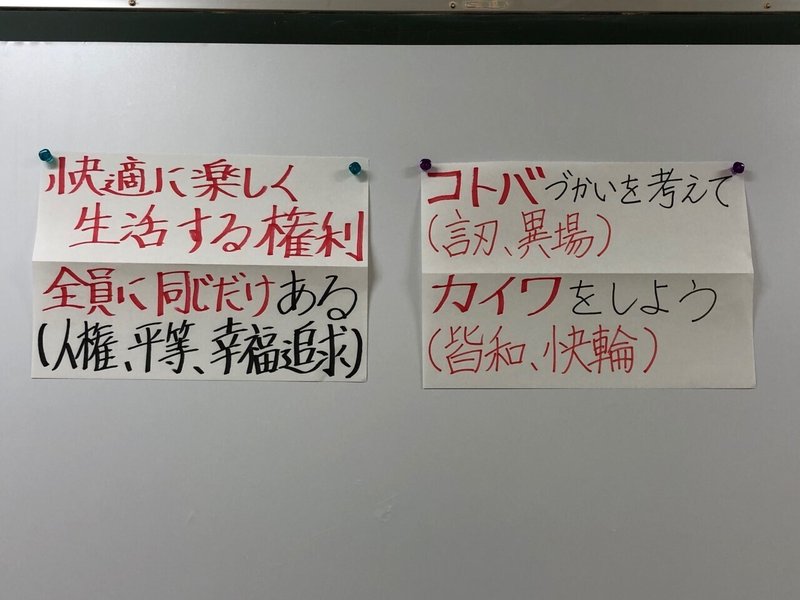 快適に楽しく
生活する権利
全員に同じだけある
(人権、平等、幸福追求)
コトバづかいを考えて
(訒、異場)
カイワをしよう
(皆和、快輪)